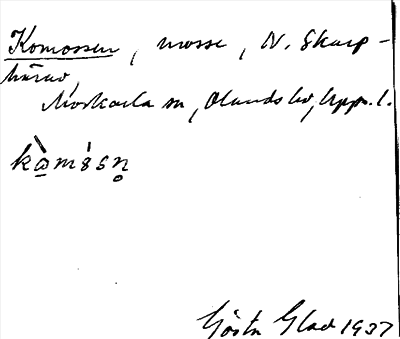 Komossen, mosse, N. Skarp-
härad,
Morkarla sn, Olands hd, Upps. l.
kòmósn̥
Gösta Glad 1937